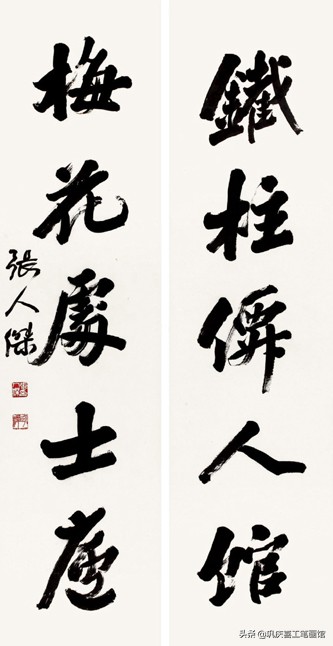 鐵柱僊人館
梅花處士廬
張人傑
头条 @巩庆喜工笔画馆